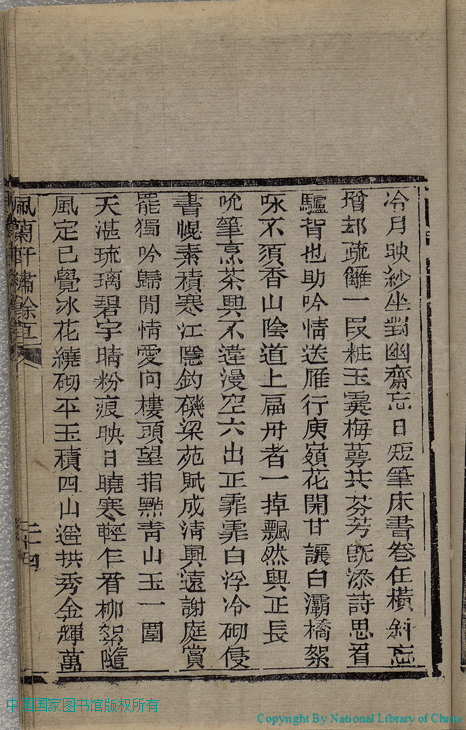 冷月映紗坐對幽齋忘日短筆床書卷任橫斜忘
增却疏籬一段粧玉霙梅萼共芬芳旣添詩思看
驢背也助吟情送雁行庾嶺花開甘讓白灞橋絮
咏不須香山陰道上扁舟者一掉飄然興正長
吮筆烹茶興不違漫空六出正霏霏白浮冷砌侵
書幌素積寒江隱釣磯梁苑賦成清興遠謝庭賞
罷獨吟歸閒情愛向樓頭望指點青山玉一圍
天湛琉璃碧宇晴粉痕映日曉寒輕乍看柳絮隨
風定已覺冰花繞砌平玉積四山迎拱秀金輝萬
軒繡餘
二十四
中国国家图书馆版权所有
Copyright By National Library of China